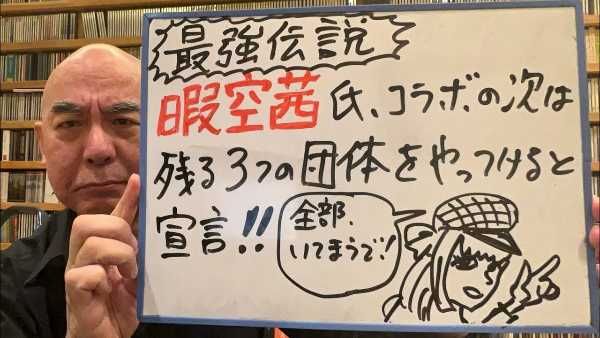 最強伝説
暇空茜氏、コラボの次は
残る3つの団体をやっつけると
宣言!!
全部、
いてまうで!